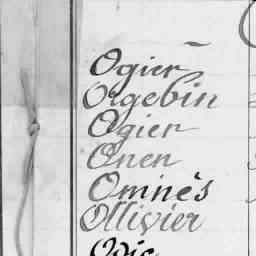 Ogier
Orgebin
Ogier
Onen
Omnès
Ollivier